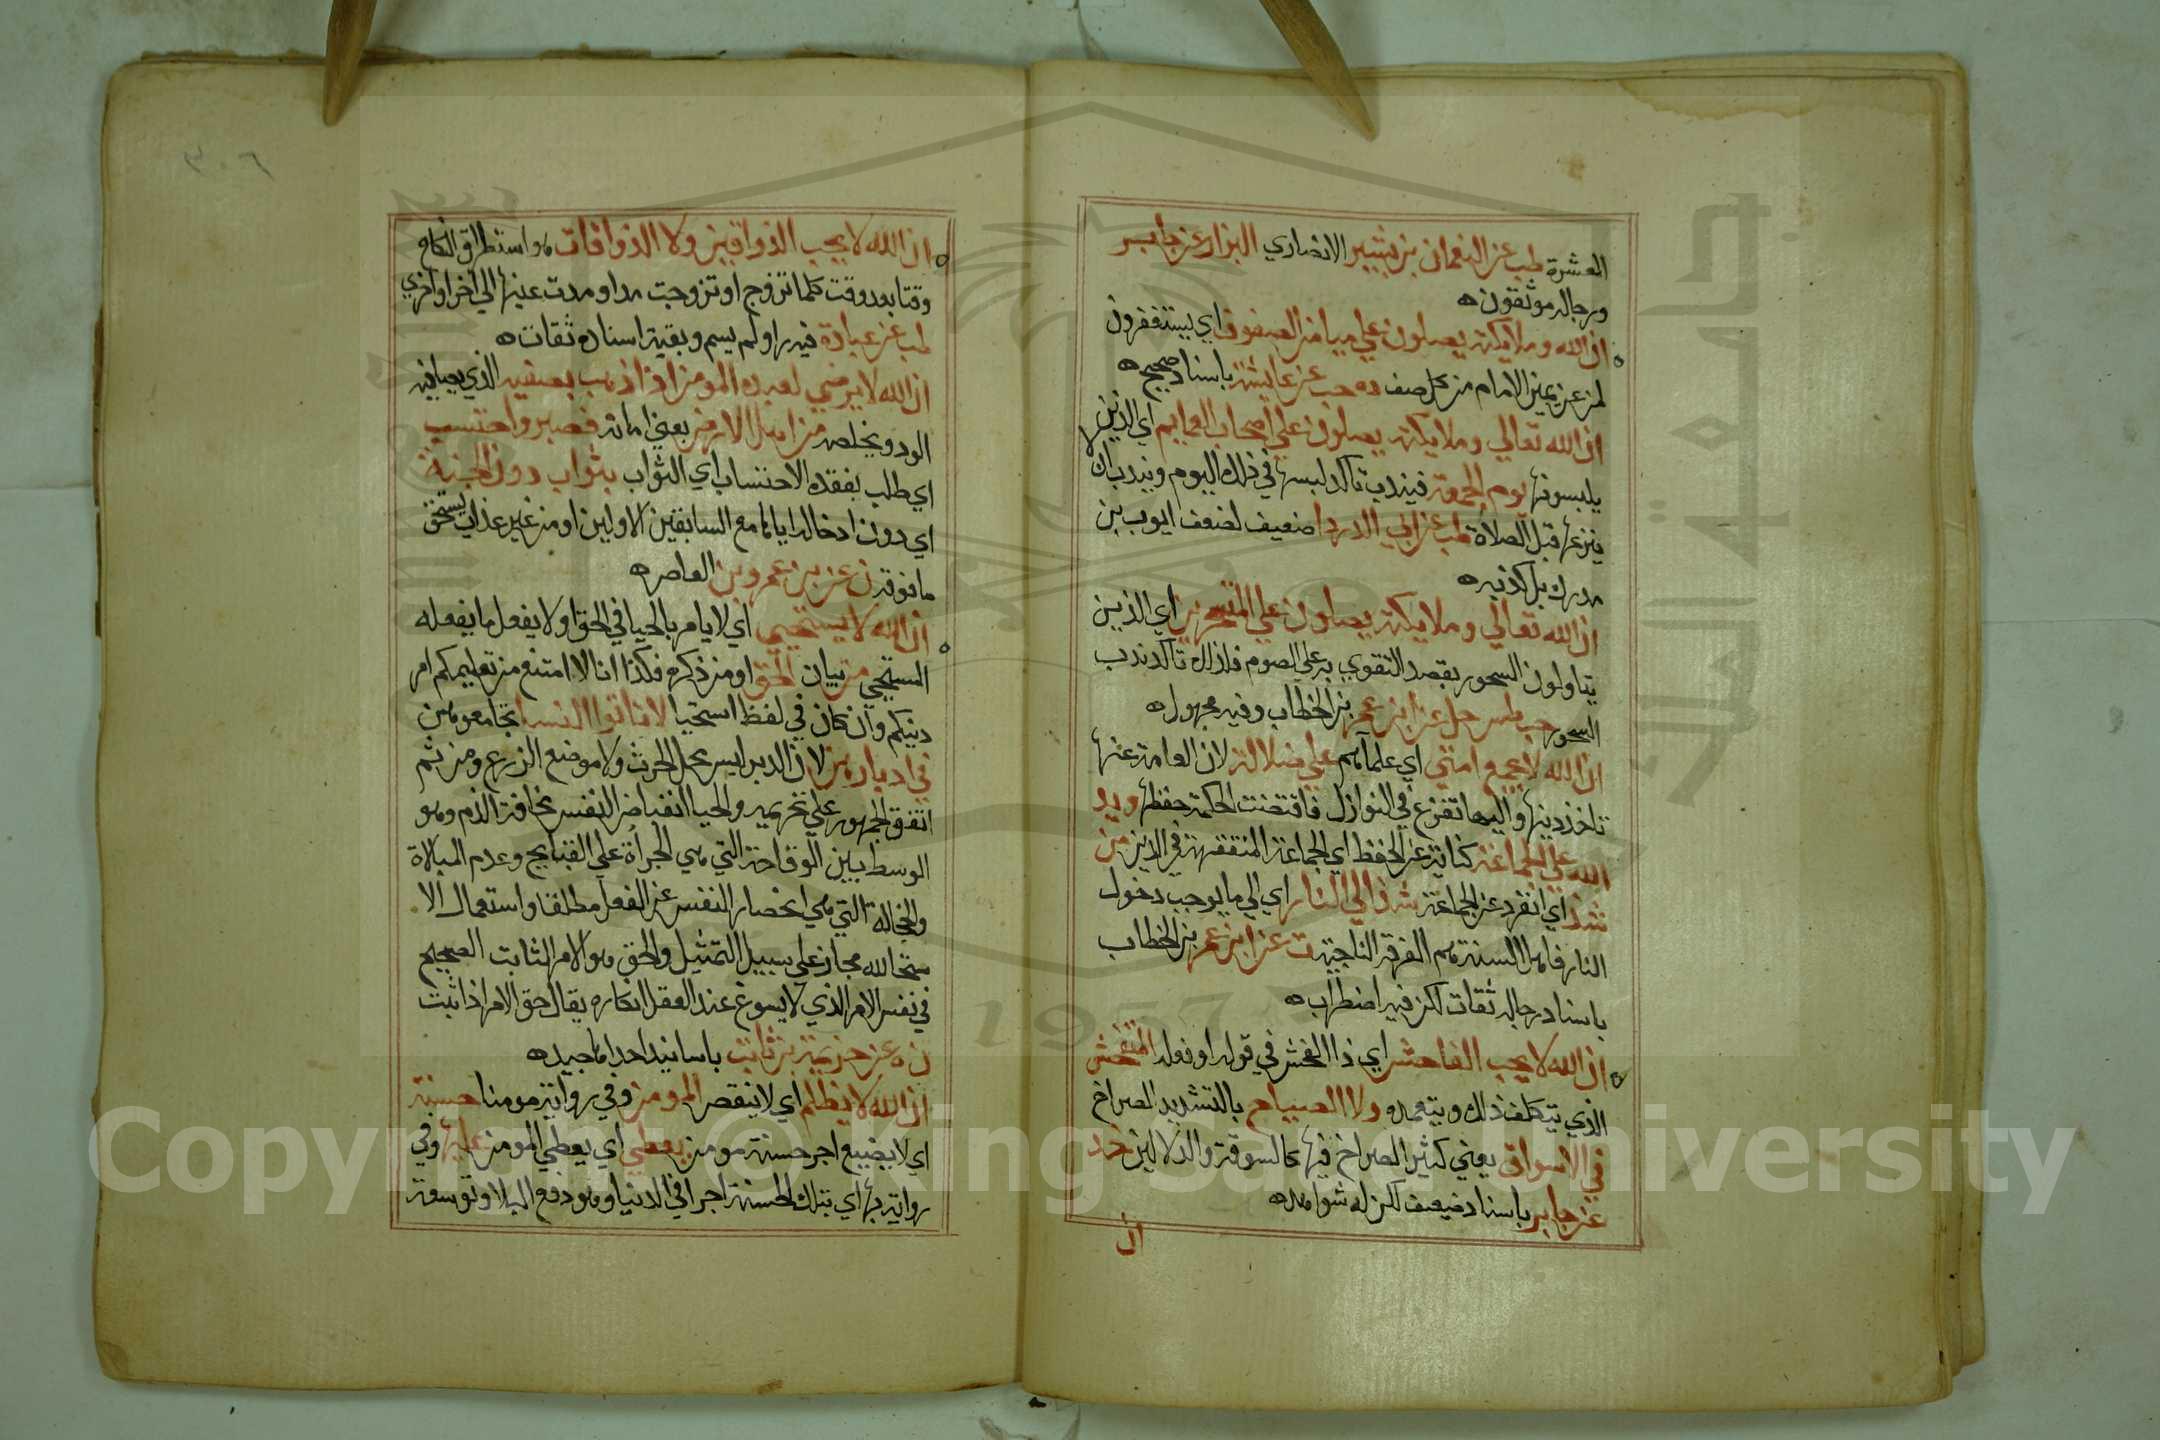 العشرة طب عن النعمان بن بشير الانصاري البزار عن جابر
ورجاله موثقون ه
ان الله وملايكته يصلون علي ميامن الصفوف اي يستغفرون
لمن عن يمين الامام من كل صف ده حب عن عايشة باسناد صحيح ه
ان الله تعالي وملايكته يصلون علي اصحاب العمايم اي الذين
يلبسونها يوم الجمعة فيندب تاكد لبسها في ذلك اليوم ويندب ان لا
ينزعها قبل الصلاة طب عن ابي الدردا ضعيف لضعف ايوب بن
مدرك بل كذبه ه
ان الله تعالي وملايكته يصلون علي المتسحرين اي الذين
يتناولون السحور بقصد التقوي به علي الصوم فلذلك تاكد ندب
السحور حب طس حل عن ابن عمر بن الخطاب وفيه مجهول ه
ان الله لا يجمع امتي اي علماهم علي ضلالة لان العامة عنها
تاخذ دينها واليها تفزع في النوازل فاقتضت الحكمة حفظها ويد
الله علي الجماعة كناية عن الحفظ اي الجماعة المتفقهة في الدين من
شذ اي انفرد عن الجماعة شذ الي النار اي الي ما يوجب دخول
النار فاهل السنة هم الفرقة الناجية ت عن ابن عمر بن الخطاب
باسناد رجاله ثقات لكن فيه اضطراب ه
ان الله لا يحب الفاحش اي ذا الفحش في قوله او فعله المتفحش
الذي يتكلف ذلك ويتعمده ولا الصياح بالتشديد الصراخ
في الاسواق يعني كثير الصراخ فيها كالسوقة والدلالين خد
عن جابر باسناد ضعيف لكن له شواهد ه
ان
٣٠٦
ان الله لا يحب الذواقين ولا الذواقات هو استطراق النكاح
وقتا بعد وقت كلما تزوج او تزوجت مد او مدت عينها الي اخر او اخري
طب عن عبادة فيه راو لم يسم وبقية اسناده ثقات ه
ان الله لا يرضي لعبده المومن اذا ذهب بصفيه الذي يصافيه
الود ويخلصه من اهل الارض يعني اماته فصبر واحتسب
اي طلب بفقده الاحتساب اي الثواب بثواب دون الجنة
اي دون ادخاله اياها مع السابقين الاولين او من غير عذاب يستحق
ما فوقه ن عن بن عمرو بن العاص ه
ان الله لا يستحيي اي لا يامر بالحيا في الحق او لا يفعل ما يفعله
المستحي من بيان الحق او من ذكره فكذا انا لا امتنع من تعليمكم امر
دينكم وان كان في لفظه استحيا لا تاتوا النسا تجامعوهن
في ادبارهن لان الدبر ليس محل الحرث ولا موضع الزرع ومن ثم
اتفق الجمهور علي تحريمه والحيا انقباض النفس مخافة الذم وهو
الوسط بين الوقاحة التي هي الجراة علي القبايح وعدم المبالاة
والخجالة التي هي انحصار النفس عن الفعل مطلقا واستعمال الا
ستحيا لله مجاز علي سبيل التمثيل والحق هو الامر الثابت الصحيح
في نفس الامر الذي لا يسوغ عند العقل انكاره يقال حق الامر اذا ثبت
ن ه عن خزيمة بن ثابت باسانيد احدها جيد ه
ان الله لا يظلم اي لا ينقص المومن وفي رواية مومنا حسنة
اي لا يضيع اجر حسنة مومن يعطي اي يعطي المومن عليها وفي
رواية بها اي بتلك الحسنة اجرا في الدنيا وهو دفع البلا وتوسعة
Copyright © King Saud University
1957